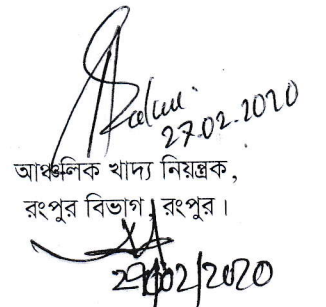 27.02.2020
আঞ্চলিক খাদ্য নিয়ন্ত্রক,
রংপুর বিভাগ, রংপুর।
/02/2020